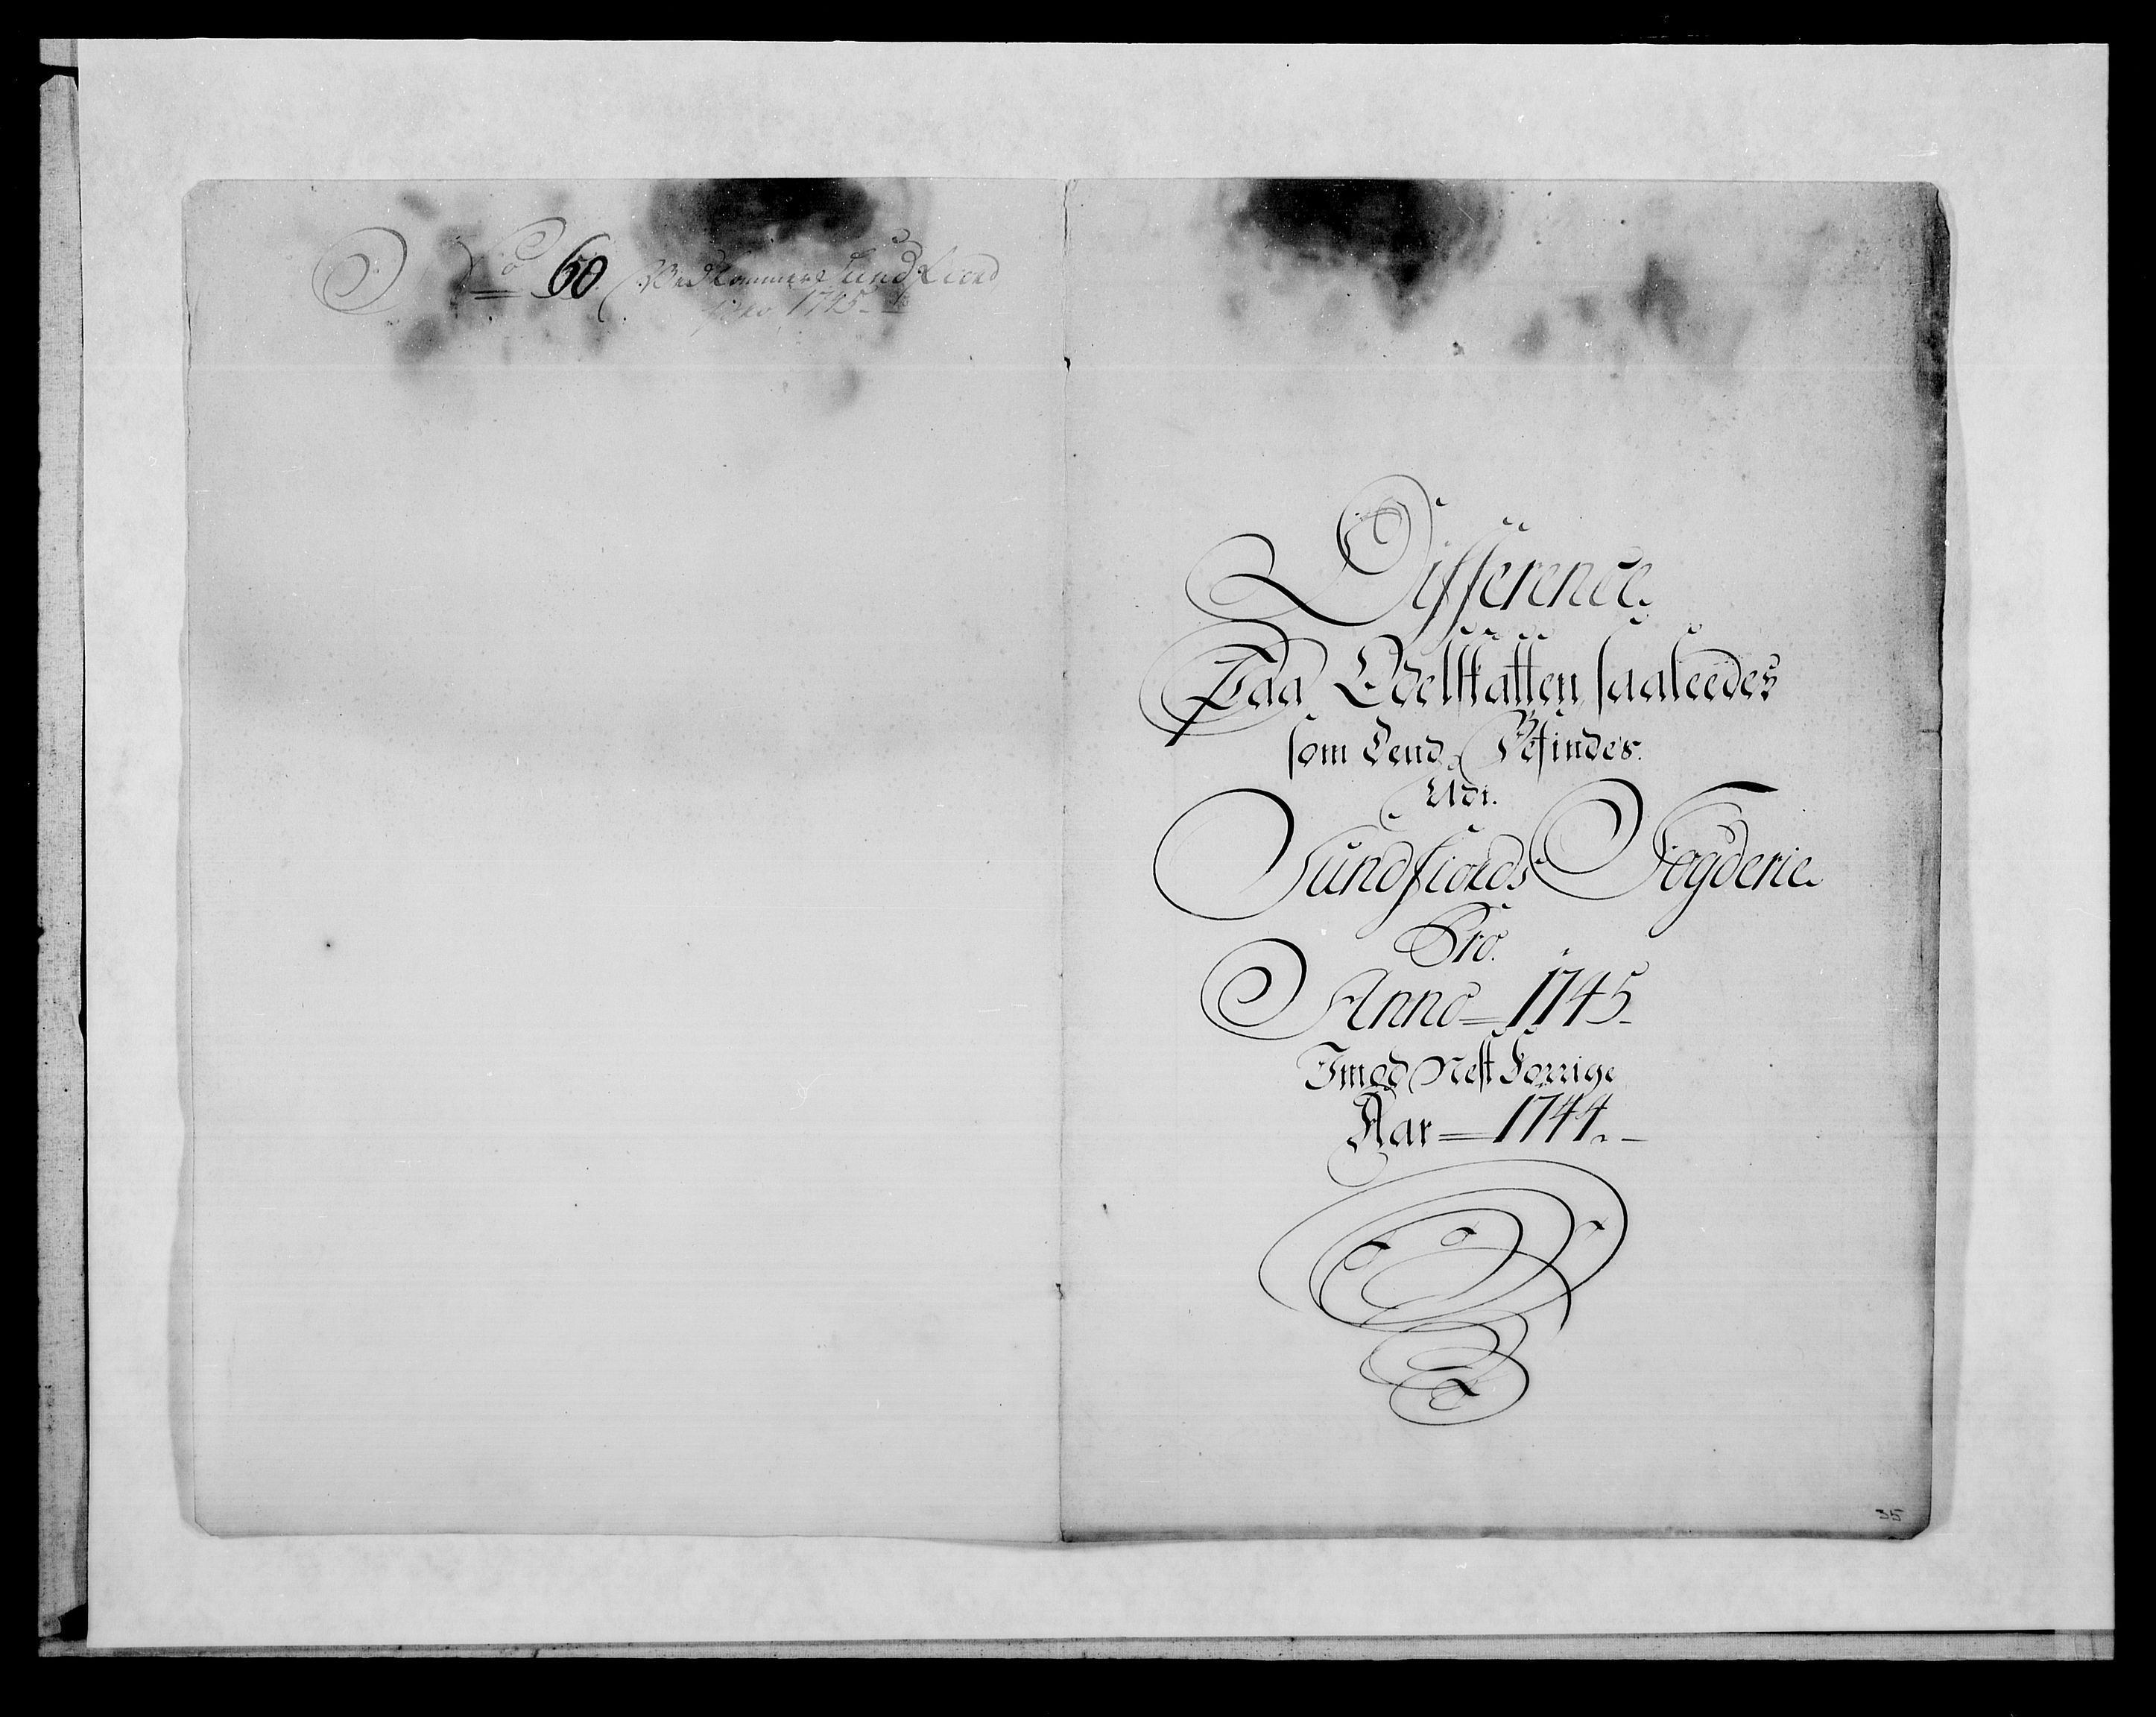 No 60 Vedkommende Sundfiord
pro 1745
Difference
Paa Odelskatten saaleedes
som dend Befindes.
Udi.
Sundfiords Fogderie
Pro.
Anno 1745
Imod Nest Forrige
Aar 1744.
35